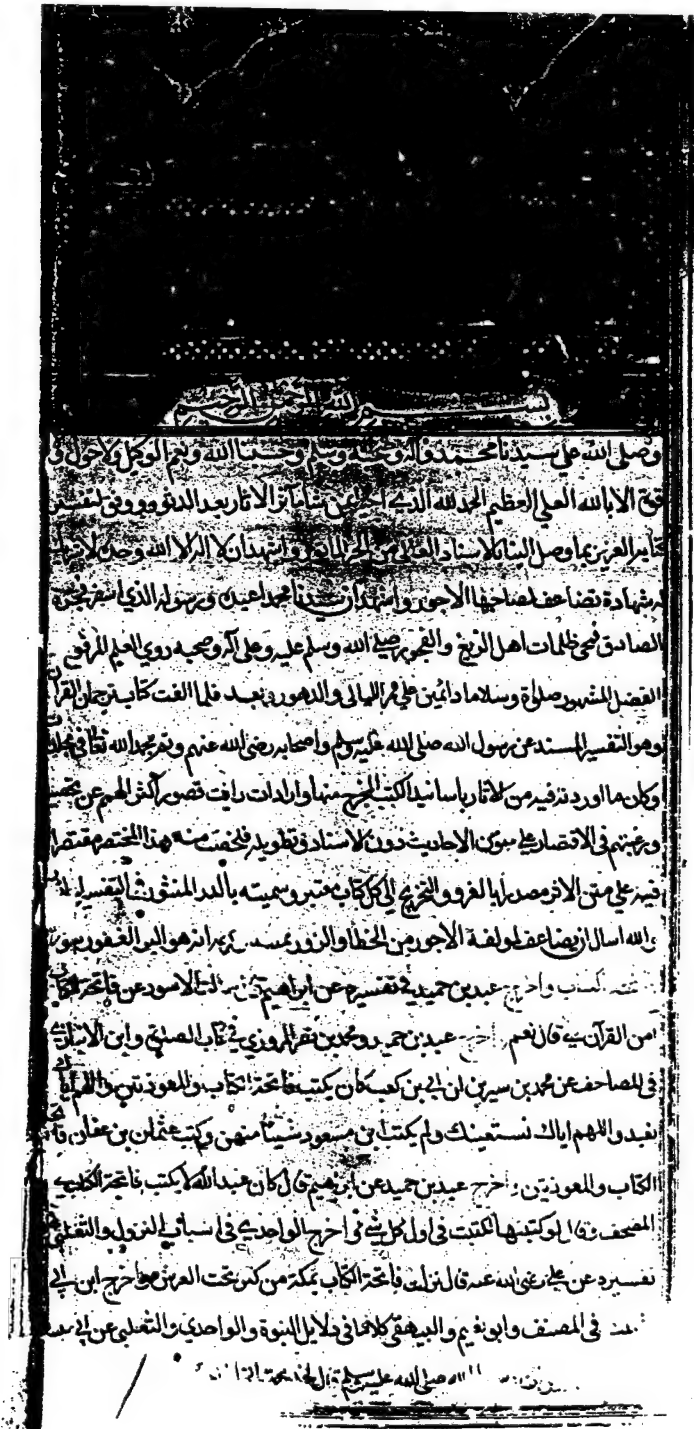 بسم الله الرحمن الرحيم
وصلى الله على سيدنا محمد واله وصحبه وسلم وحسبنا الله ونعم الوكيل ولا حول و
قوة الا بالله العلي العظيم الحمد لله الذي احيا بمن شا مآثر الآثار بعد الدثور ووفق لتفسير
كتابه العزيز بما وصل الينا بالاسناد العالي من الخبر الماثور واشهد ان لا اله الا الله وحده لا شريك
له شهادة تضاعف لصاحبها الاجور واشهد ان سيدنا محمدا عبده ورسوله الذي اسفر فجره
الصادق فمحى ظلمات اهل الزيغ والفجور صلى الله وسلم عليه وعلى آله وصحبه ذوي العلم المرفوع
الفضل المشهور صلوة وسلاما دائمين على ممر الليالي والدهور وبعد فلما الفت كتاب ترجمان القرآن
وهو التفسير المسند عن رسول الله صلى الله عليه وسلم واصحابه رضى الله عنهم وتم بحمد الله تعالى في مجلدات
وكان ما اوردته فيه من الآثار باسانيد الكتب المخرج منها واردات رايت قصور اكثر الهمم عن تحصيله
ورغبتهم في الاقتصار على متون الاحاديث دون الاسناد وتطويله فلخصت منه هذا المختصر مقتصرا
فيه على متن الاثر مصدرا بالعزو والتخريج الى كل كتاب معتبر وسميته بالدر المنثور في التفسير
والله اسال ان يضاعف لمولفه الاجور من الخطا والزور بمنه وكرمه انه هو البر الغفور سورة
الكتاب واخرج عبد بن حميد في تفسيره عن ابراهيم قال سالت الاسود عن فاتحة الكتاب
امن القرآن هي قال نعم واخرج عبد بن حميد ومحمد بن نصر المروزي في كتاب الصلوة وابن الانباري
في المصاحف عن محمد بن سيرين ان ابي بن كعب كان يكتب فاتحة الكتاب والمعوذتين واللهم اياك
نعبد واللهم اياك نستعينك ولم يكتب ابن مسعود شيئا منهن وكتب عثمان بن عفان فاتحة
الكتاب والمعوذتين واخرج عبد بن حميد عن ابرهيم قال كان عبد الله لا يكتب فاتحة الكتاب في
المصحف وقال لو كتبتها لكتبت في اول كل شي واخرج الواحدي في اسباب النزول والثعلبي في
تفسيره عن علي رضى الله عنه قال نزلت فاتحة الكتاب بمكة من كنز تحت العرش واخرج ابن ابي
في المصنف وابو نعيم والبيهقي كلاهما في دلايل النبوة والواحدي والثعلبي عن ابي
الله صلى الله عليه وسلم قال